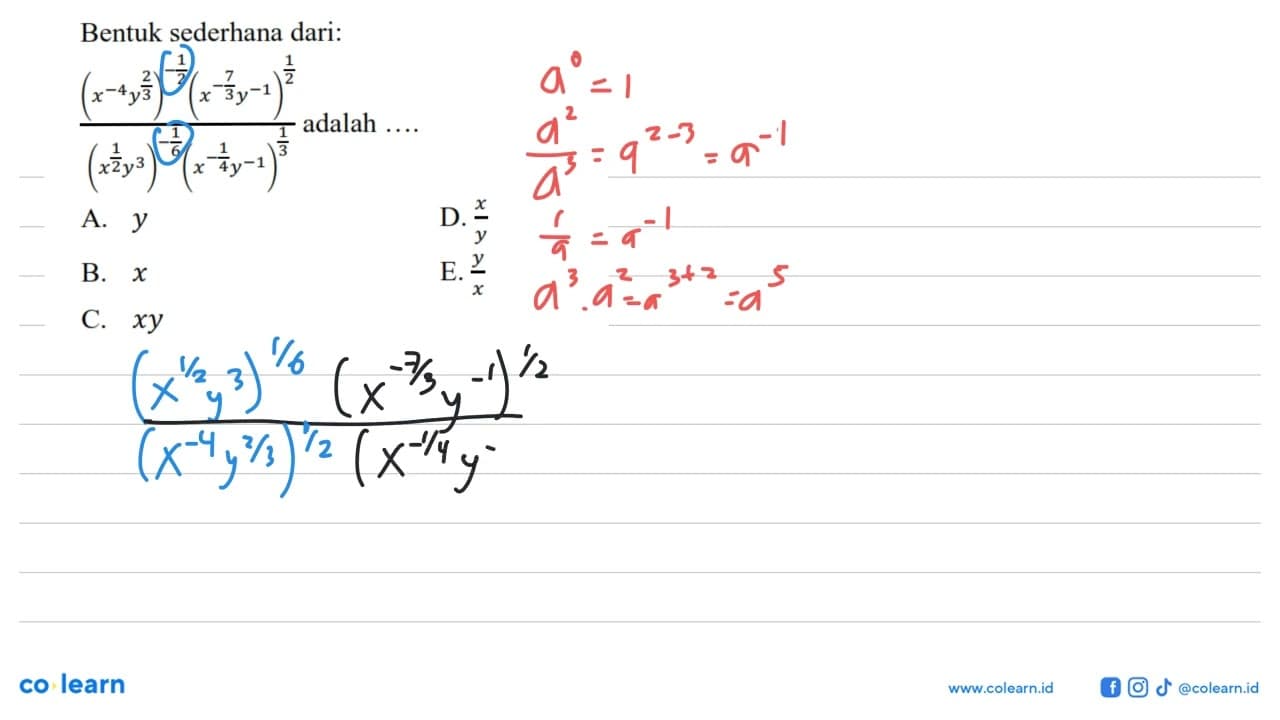 Bentuk sederhana dari:
(x^{-4}y^{\frac{2}{3}})^{-\frac{1}{2}}(x^{-\frac{7}{3}}y^{-1})^{\frac{1}{2}}
(x^{\frac{1}{2}}y^{3})^{-\frac{1}{6}}(x^{-\frac{1}{4}}y^{-1})^{\frac{1}{3}} adalah ....
A. y
B. x
C. xy
D. \frac{x}{y}
E. \frac{y}{x}
a^0 = 1
\frac{a^2}{a^3} = a^{2-3} = a^{-1}
\frac{1}{a} = a^{-1}
a^3 . a^2 = a^{3+2} = a^5
(x^{1/2}y^3)^{1/6} (x^{-7/3}y^{-1})^{1/2}
(x^{-4}y^{2/3})^{1/2} (x^{-1/4}y^-
co learn
www.colearn.id
@colearn.id